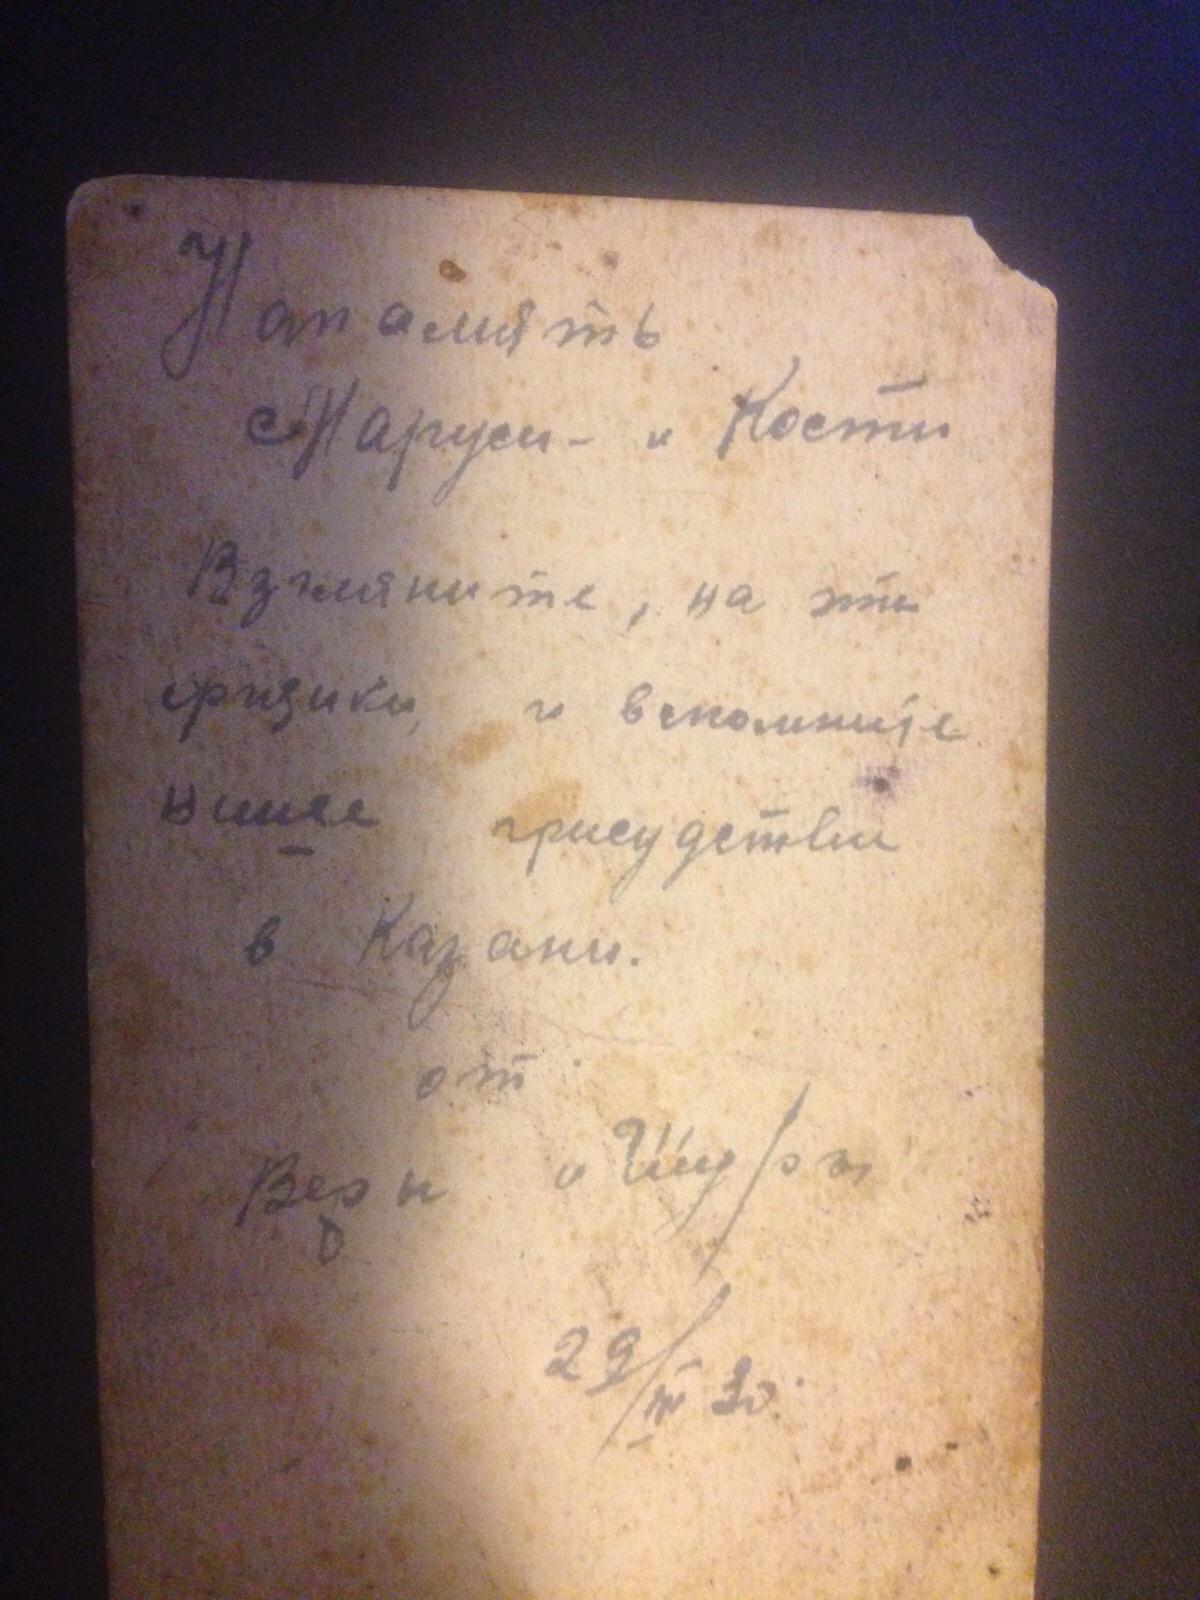 На память
Маруси - и Кости
Взгляните, на эти
физики, и вспомните
наше присудствии
в Казани.
от
Веры и Шуры
29/III 30.